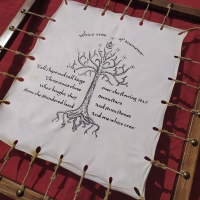 white tree of
Tall ships and tall kings
Three times three
What brought they
from the foundered land
over the flowing sea?
Seven stars
And seven stones
And one white tree